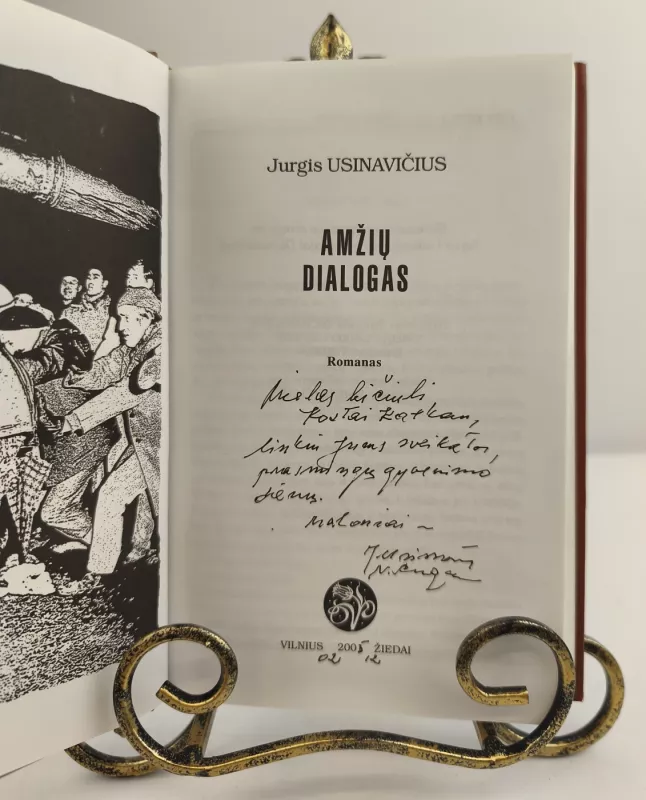 Jurgis USINAVIČIUS
AMŽIŲ
DIALOGAS
Romanas
Mielas bičiuli
linkiu Jums sveikatos,
prasmingų gyvenimo
dienų.
Maloniai –
VILNIUS 2005 ŽIEDAI
02 12